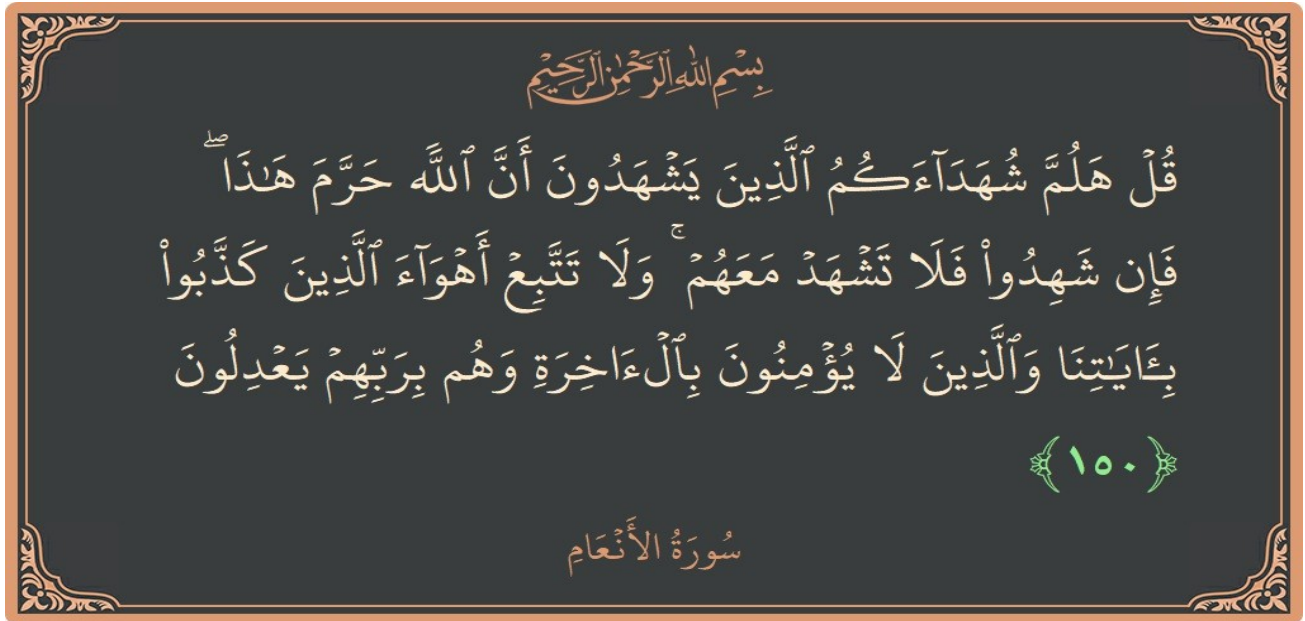 بِسْمِ ٱللَّهِ ٱلرَّحْمَٰنِ ٱلرَّحِيمِ
قُلْ هَلُمَّ شُهَدَآءَكُمُ ٱلَّذِينَ يَشْهَدُونَ أَنَّ ٱللَّهَ حَرَّمَ هَٰذَا ۖ
فَإِن شَهِدُوا۟ فَلَا تَشْهَدْ مَعَهُمْ ۚ وَلَا تَتَّبِعْ أَهْوَآءَ ٱلَّذِينَ كَذَّبُوا۟
بِـَٔايَٰتِنَا وَٱلَّذِينَ لَا يُؤْمِنُونَ بِٱلْءَاخِرَةِ وَهُم بِرَبِّهِمْ يَعْدِلُونَ
﴿١٥٠﴾
سُورَةُ الأَنْعَامِ